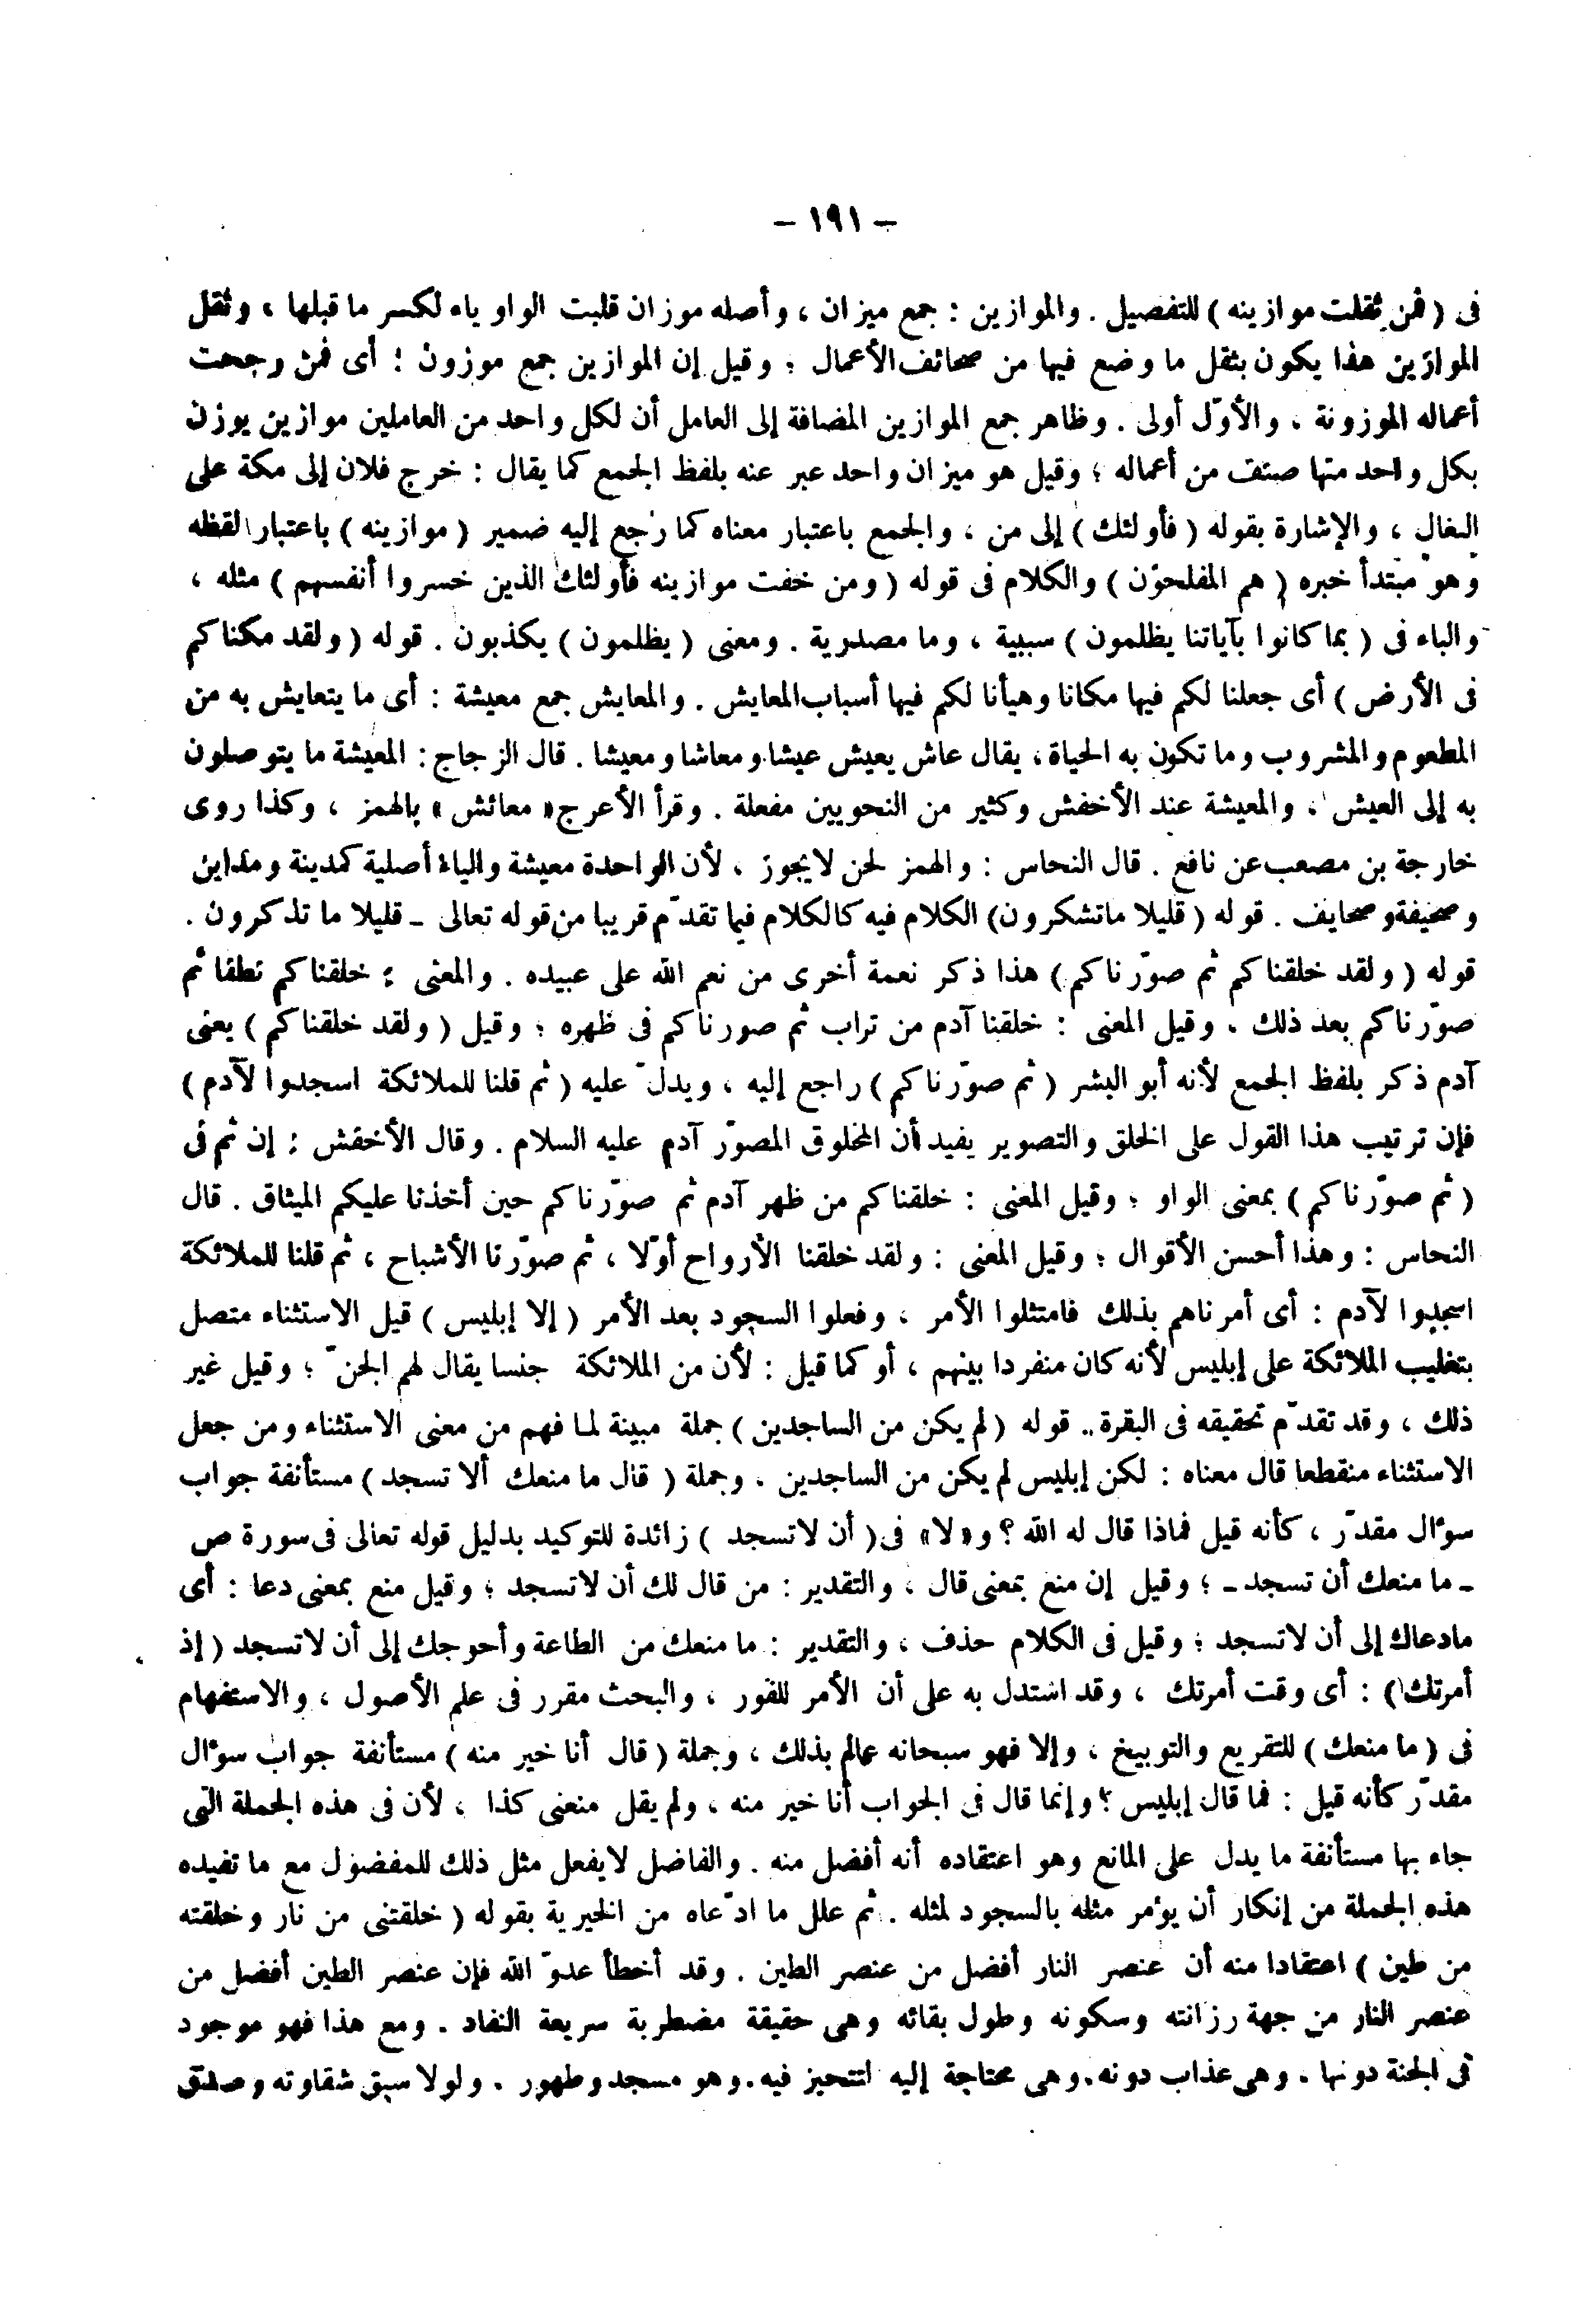 - ١٩١ -
فى ( فمن ثقلت موازينه ) للتفصيل . والموازين : جمع ميزان ، وأصله موزان قلبت الواو ياء لكسر ما قبلها ، وثقل
الموازين هذا يكون بثقل ما وضع فيها من صحائف الأعمال ؛ وقيل إن الموازين جمع موزون ؛ أى فمن رجحت
أعماله الموزونة ، والأوّل أولى . وظاهر جمع الموازين المضافة إلى العامل أن لكل واحد من العاملين موازين يوزن
بكل واحد منها صنف من أعماله ؛ وقيل هو ميزان واحد عبر عنه بلفظ الجمع كما يقال : خرج فلان إلى مكة على
البغال ، والإشارة بقوله ( فأولئك ) إلى من ، والجمع باعتبار معناه كما رجع إليه ضمير ( موازينه ) باعتبار لفظه
وهو مبتدأ خبره ( هم المفلحون ) والكلام فى قوله ( ومن خفت موازينه فأولئك الذين خسروا أنفسهم ) مثله ،
والباء فى ( بما كانوا بآياتنا يظلمون ) سببية ، وما مصدرية . ومعنى ( يظلمون ) يكذبون . قوله ( ولقد مكناكم
فى الأرض ) أى جعلنا لكم فيها مكانا وهيأنا لكم فيها أسباب المعايش . والمعايش جمع معيشة : أى ما يتعايش به من
المطعوم والمشروب وما تكون به الحياة ، يقال عاش يعيش عيشا ومعاشا ومعيشا . قال الزجاج : المعيشة ما يتوصلون
به إلى العيش ، والمعيشة عند الأخفش وكثير من النحويين مفعلة . وقرأ الأعرج « معائش » بالهمز ، وكذا روى
خارجة بن مصعب عن نافع . قال النحاس : والهمز لحن لايجوز ، لأن الواحدة معيشة والياء أصلية كمدينة ومداين
وصحيفة وصحايف . قوله ( قليلا ماتشكرون ) الكلام فيه كالكلام فيما تقدّم قريبا من قوله تعالى - قليلا ما تذكرون .
قوله ( ولقد خلقناكم ثم صوّرناكم ) هذا ذكر نعمة أخرى من نعم الله على عبيده . والمعنى : خلقناكم نطفا ثم
صوّرناكم بعد ذلك ، وقيل المعنى : خلقنا آدم من تراب ثم صورناكم فى ظهره ؛ وقيل ( ولقد خلقناكم ) يعنى
آدم ذكر بلفظ الجمع لأنه أبو البشر ( ثم صوّرناكم ) راجع إليه ، ويدلّ عليه ( ثم قلنا للملائكة اسجدوا لآدم )
فإن ترتيب هذا القول على الخلق والتصوير يفيد أن المخلوق المصوّر آدم عليه السلام . وقال الأخفش : إن ثم فى
( ثم صوّرناكم ) بمعنى الواو ؛ وقيل المعنى : خلقناكم من ظهر آدم ثم صوّرناكم حين أخذنا عليكم الميثاق . قال
النحاس : وهذا أحسن الأقوال ؛ وقيل المعنى : ولقد خلقنا الأرواح أوّلا ، ثم صوّرنا الأشباح ، ثم قلنا للملائكة
اسجدوا لآدم : أى أمرناهم بذلك فامتثلوا الأمر ، وفعلوا السجود بعد الأمر ( إلا إبليس ) قيل الاستثناء متصل
بتغليب الملائكة على إبليس لأنه كان منفردا بينهم ، أو كما قيل : لأن من الملائكة جنسا يقال لهم الجنّ ؛ وقيل غير
ذلك ، وقد تقدّم تحقيقه فى البقرة . قوله ( لم يكن من الساجدين ) جملة مبينة لما فهم من معنى الاستثناء ومن جعل
الاستثناء منقطعا قال معناه : لكن إبليس لم يكن من الساجدين ، وجملة ( قال ما منعك ألا تسجد ) مستأنفة جواب
سؤال مقدّر ، كأنه قيل فماذا قال له الله ؟ و« لا » فى ( أن لاتسجد ) زائدة للتوكيد بدليل قوله تعالى فى سورة ص
- ما منعك أن تسجد - ؛ وقيل إن منع بمعنى قال ، والتقدير : من قال لك أن لاتسجد ؛ وقيل منع بمعنى دعا : أى
مادعاك إلى أن لاتسجد ؛ وقيل فى الكلام حذف ، والتقدير : ما منعك من الطاعة وأحوجك إلى أن لاتسجد ( إذ
أمرتك ) : أى وقت أمرتك ، وقد استدل به على أن الأمر للفور ، والبحث مقرر فى علم الأصول ، والاستفهام
فى ( ما منعك ) للتقريع والتوبيخ ، وإلا فهو سبحانه عالم بذلك ، وجملة ( قال أنا خير منه ) مستأنفة جواب سؤال
مقدّر كأنه قيل : فما قال إبليس ؟ وإنما قال فى الجواب أنا خير منه ، ولم يقل منعنى كذا ، لأن فى هذه الجملة التى
جاء بها مستأنفة ما يدل على المانع وهو اعتقاده أنه أفضل منه . والفاضل لايفعل مثل ذلك للمفضول مع ما تفيده
هذه الجملة من إنكار أن يؤمر مثله بالسجود لمثله . ثم علل ما ادّعاه من الخيرية بقوله ( خلقتنى من نار وخلقته
من طين ) اعتقادا منه أن عنصر النار أفضل من عنصر الطين . وقد أخطأ عدوّ الله فإن عنصر الطين أفضل من
عنصر النار من جهة رزانته وسكونه وطول بقائه وهى حقيقة مضطربة سريعة النفاد . ومع هذا فهو موجود
فى الجنة دونها ، وهى عذاب دونه ، وهى محتاجة إليه لتتحيز فيه ، وهو مسجد وطهور . ولولا سبق شقاوته وصدق